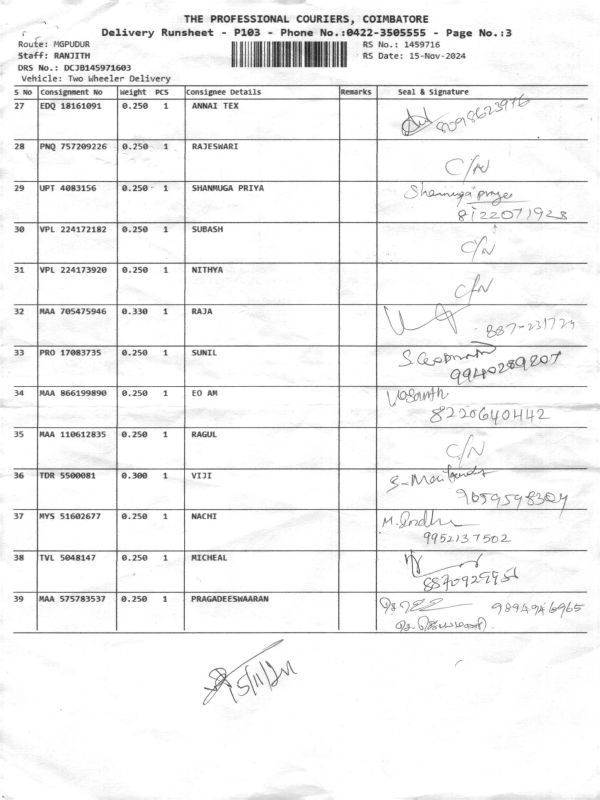 THE PROFESSIONAL COURIERS, COIMBATORE
Delivery Runsheet - P103 - Phone No.:0422-3505555 - Page No.:3
Route: MGPUDUR RS No.: 1459716
Staff: RANJITH RS Date: 15-Nov-2024
DRS No.: DCJB145971603
Vehicle: Two Wheeler Delivery
S No Consignment No Weight PCS Consignee Details Remarks Seal & Signature
27 EDQ 18161091 0.250 1 ANNAI TEX 8098623976
28 PNQ 757209226 0.250 1 RAJESWARI C/N
29 UPT 4083156 0.250 1 SHANMUGA PRIYA Shanmuga priya
8122071928
30 VPL 224172182 0.250 1 SUBASH C/N
31 VPL 224173920 0.250 1 NITHYA C/N
32 MAA 705475946 0.330 1 RAJA
33 PRO 17083735 0.250 1 SUNIL
9940289207
34 MAA 866199890 0.250 1 EO AM Vasanth
8220640442
35 MAA 110612835 0.250 1 RAGUL C/N
36 TDR 5500081 0.300 1 VIJI
9659598304
37 MYS 51602677 0.250 1 NACHI M. Indhu
9952137502
38 TVL 5048147 0.250 1 MICHEAL
39 MAA 575783537 0.250 1 PRAGADEESWAARAN 9894946965
15/11/24